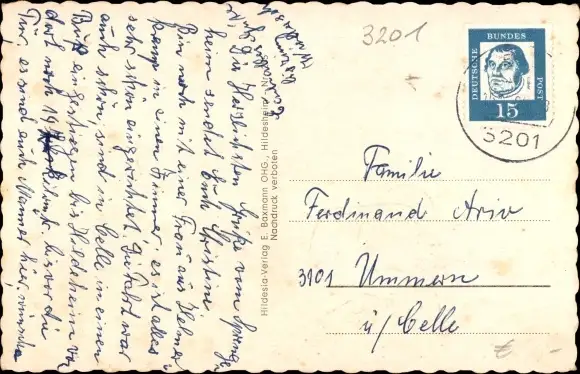 3201
DEUTSCHE BUNDES POST
15
3201
Familie
Ferdinand Ariv
3101 Ummern
ü/Celle
Hildesia-Verlag E. Baxmann OHG., Hildesheim,
Nachdruck verboten
Die herzlichsten Grüße vom Springe
heim sendet Euch Christine.
Bin noch mit einer Frau aus
zusammen in einen Zimmer, es ist alles
sehr schön eingerichtet, die Fahrt war
auch schön, sind in Celle in einen
Bus eingestiegen bis Hildesheim vor
dort noch 19 bis vor die
Tür, es sind auch Männer hier,